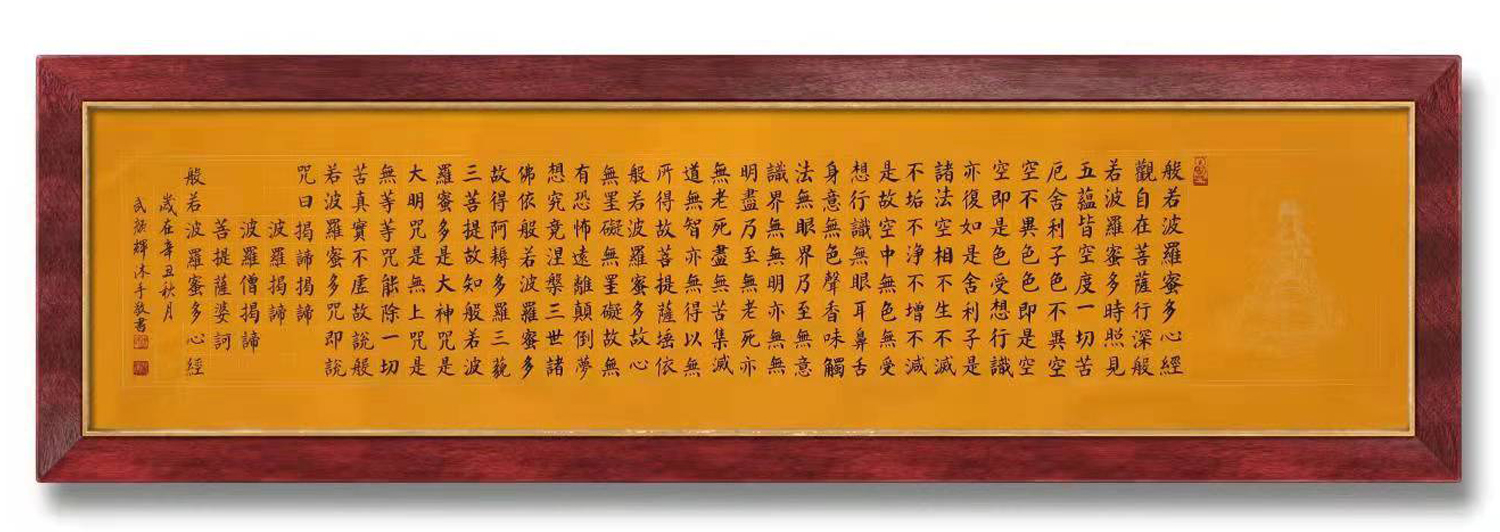 般若波羅蜜多心經
觀自在菩薩行深般
若波羅蜜多時照見
五蘊皆空度一切苦
厄舍利子色不異空
空不異色色即是空
空即是色受想行識
亦復如是舍利子是
諸法空相不生不滅
不垢不淨不增不減
是故空中無色無受
想行識無眼耳鼻舌
身意無色聲香味觸
法無眼界乃至無意
識界無無明亦無無
明盡乃至無老死亦
無老死盡無苦集滅
道無智亦無得以無
所得故菩提薩埵依
般若波羅蜜多故心
無罣礙無罣礙故無
有恐怖遠離顛倒夢
想究竟涅槃三世諸
佛依般若波羅蜜多
故得阿耨多羅三藐
三菩提故知般若波
羅蜜多是大神咒是
大明咒是無上咒是
無等等咒能除一切
苦真實不虛故說般
若波羅蜜多咒即說
咒曰揭諦揭諦
波羅揭諦
波羅僧揭諦
菩提薩婆訶
般若波羅蜜多心經
歲在辛丑秋月
武輝沐手敬書